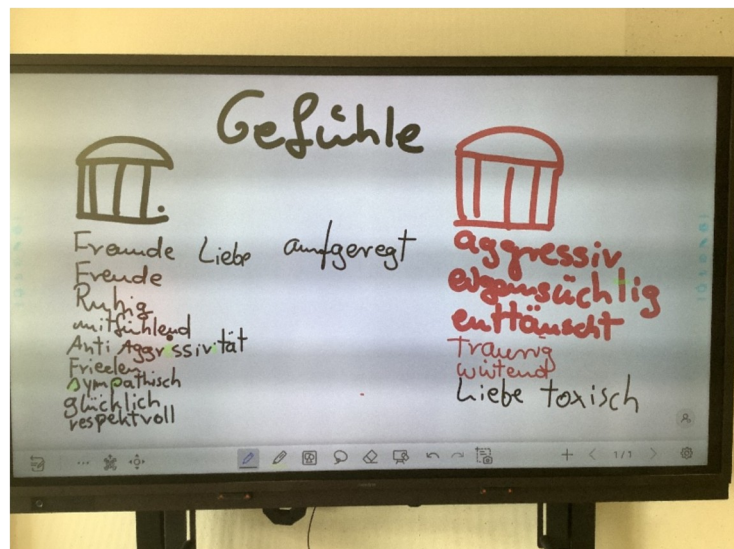 Gefühle
Freunde Liebe aufgeregt
Freude
Ruhig
mitfühlend
Anti Aggressivität
Frieden
sympathisch
glücklich
respektvoll
aggressiv
enttäuscht
Traurig
wütend
Liebe toxisch
1/1